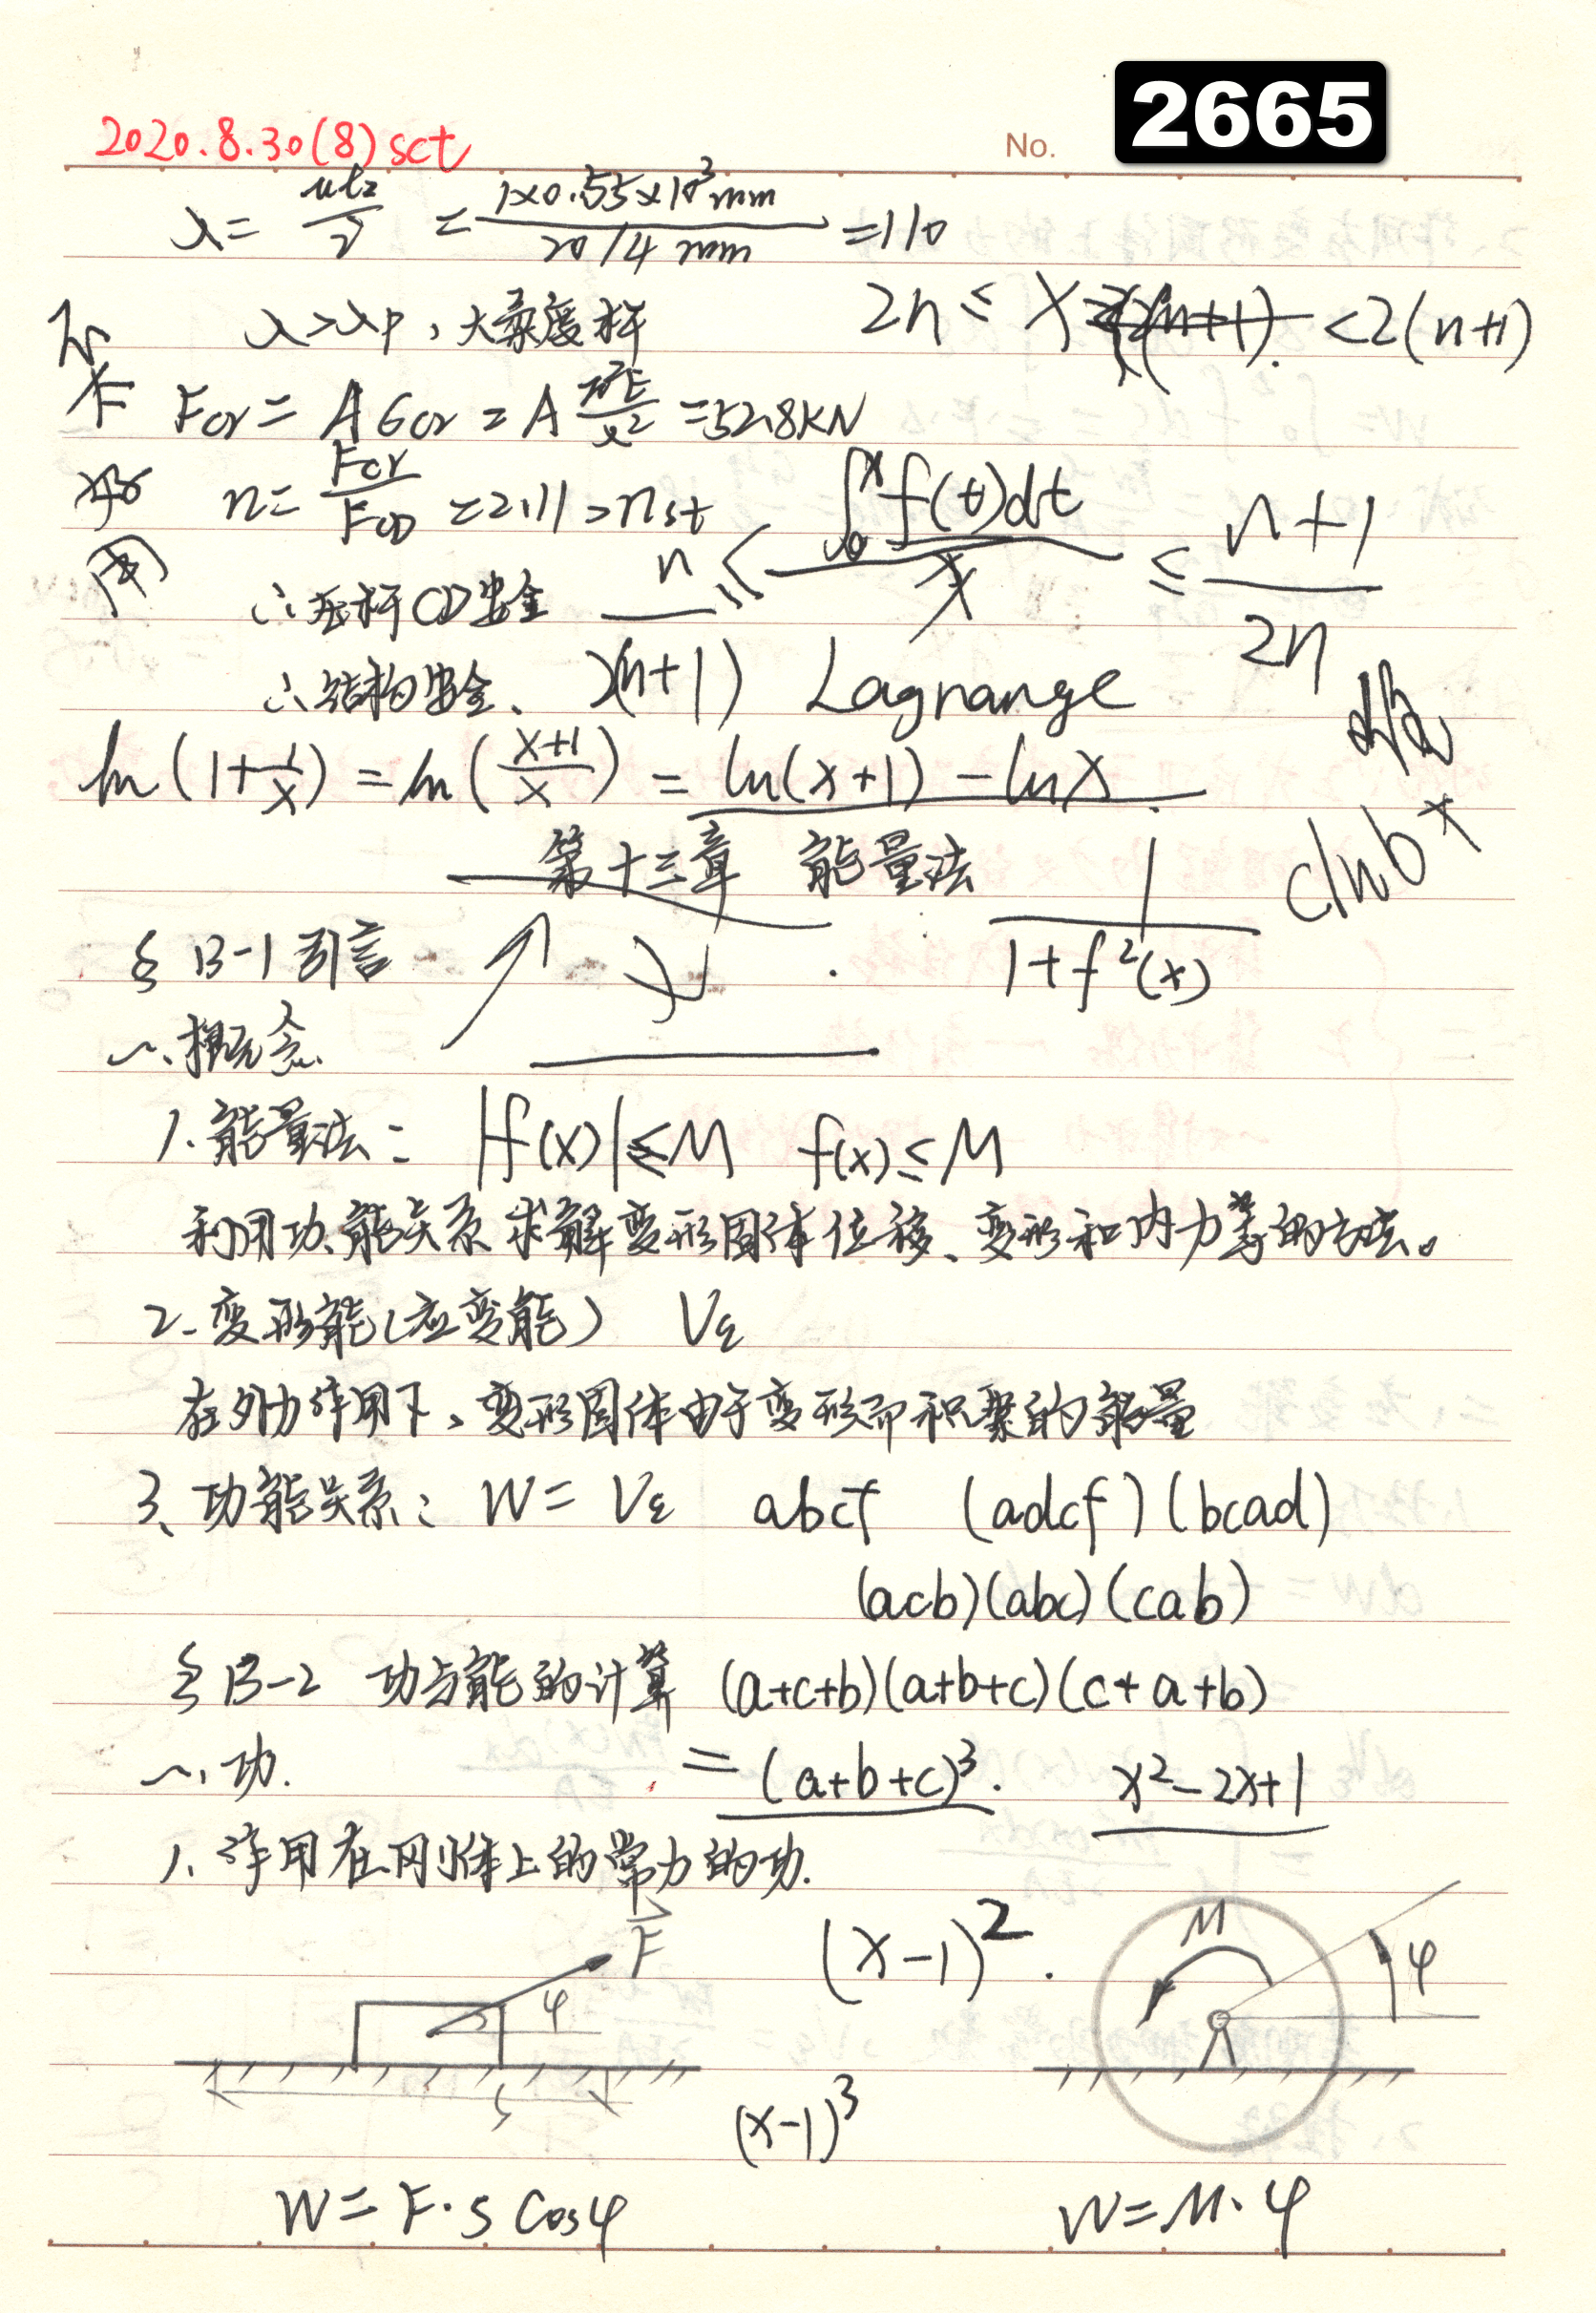 2665
2020.8.30(8) sct
No.
λ= μl/i = 1×0.55×10³mm / 20/4 mm =110
λ>λp,大柔度杆
2n ≤ x <2(n+1)
不
好
用
Fcr= Aσcr = A π²E/λ² =52.8KN
n= Fcr/FCD =2.11>nst
n / 2(n+1) ≤ ∫₀ˣf(t)dt / x ≤ n+1 / 2n
∴压杆CD安全
∴结构安全、
Lagrange
ln(1+1/x) = ln(x+1/x) = ln(x+1) - lnx
club x
第十三章 能量法
1 / 1+f²(x)
§13-1 引言
一、概念
1、能量法:
|f(x)|≤M f(x)≤M
利用功、能关系求解变形固体位移、变形和内力等的方法。
2、变形能(应变能) Vε
在外力作用下,变形固体由于变形而积累的能量
3、功能关系: W= Vε abcf (adcf)(bcad)
(acb)(abc)(cab)
§13-2 功与能的计算 (a+c+b)(a+b+c)(c+a+b)
一、功.
=(a+b+c)³. x²-2x+1
1、作用在刚体上的常力的功.
F
φ
s
(x-1)².
M
φ
(x-1)³
W=F·s cosφ
W=M·φ